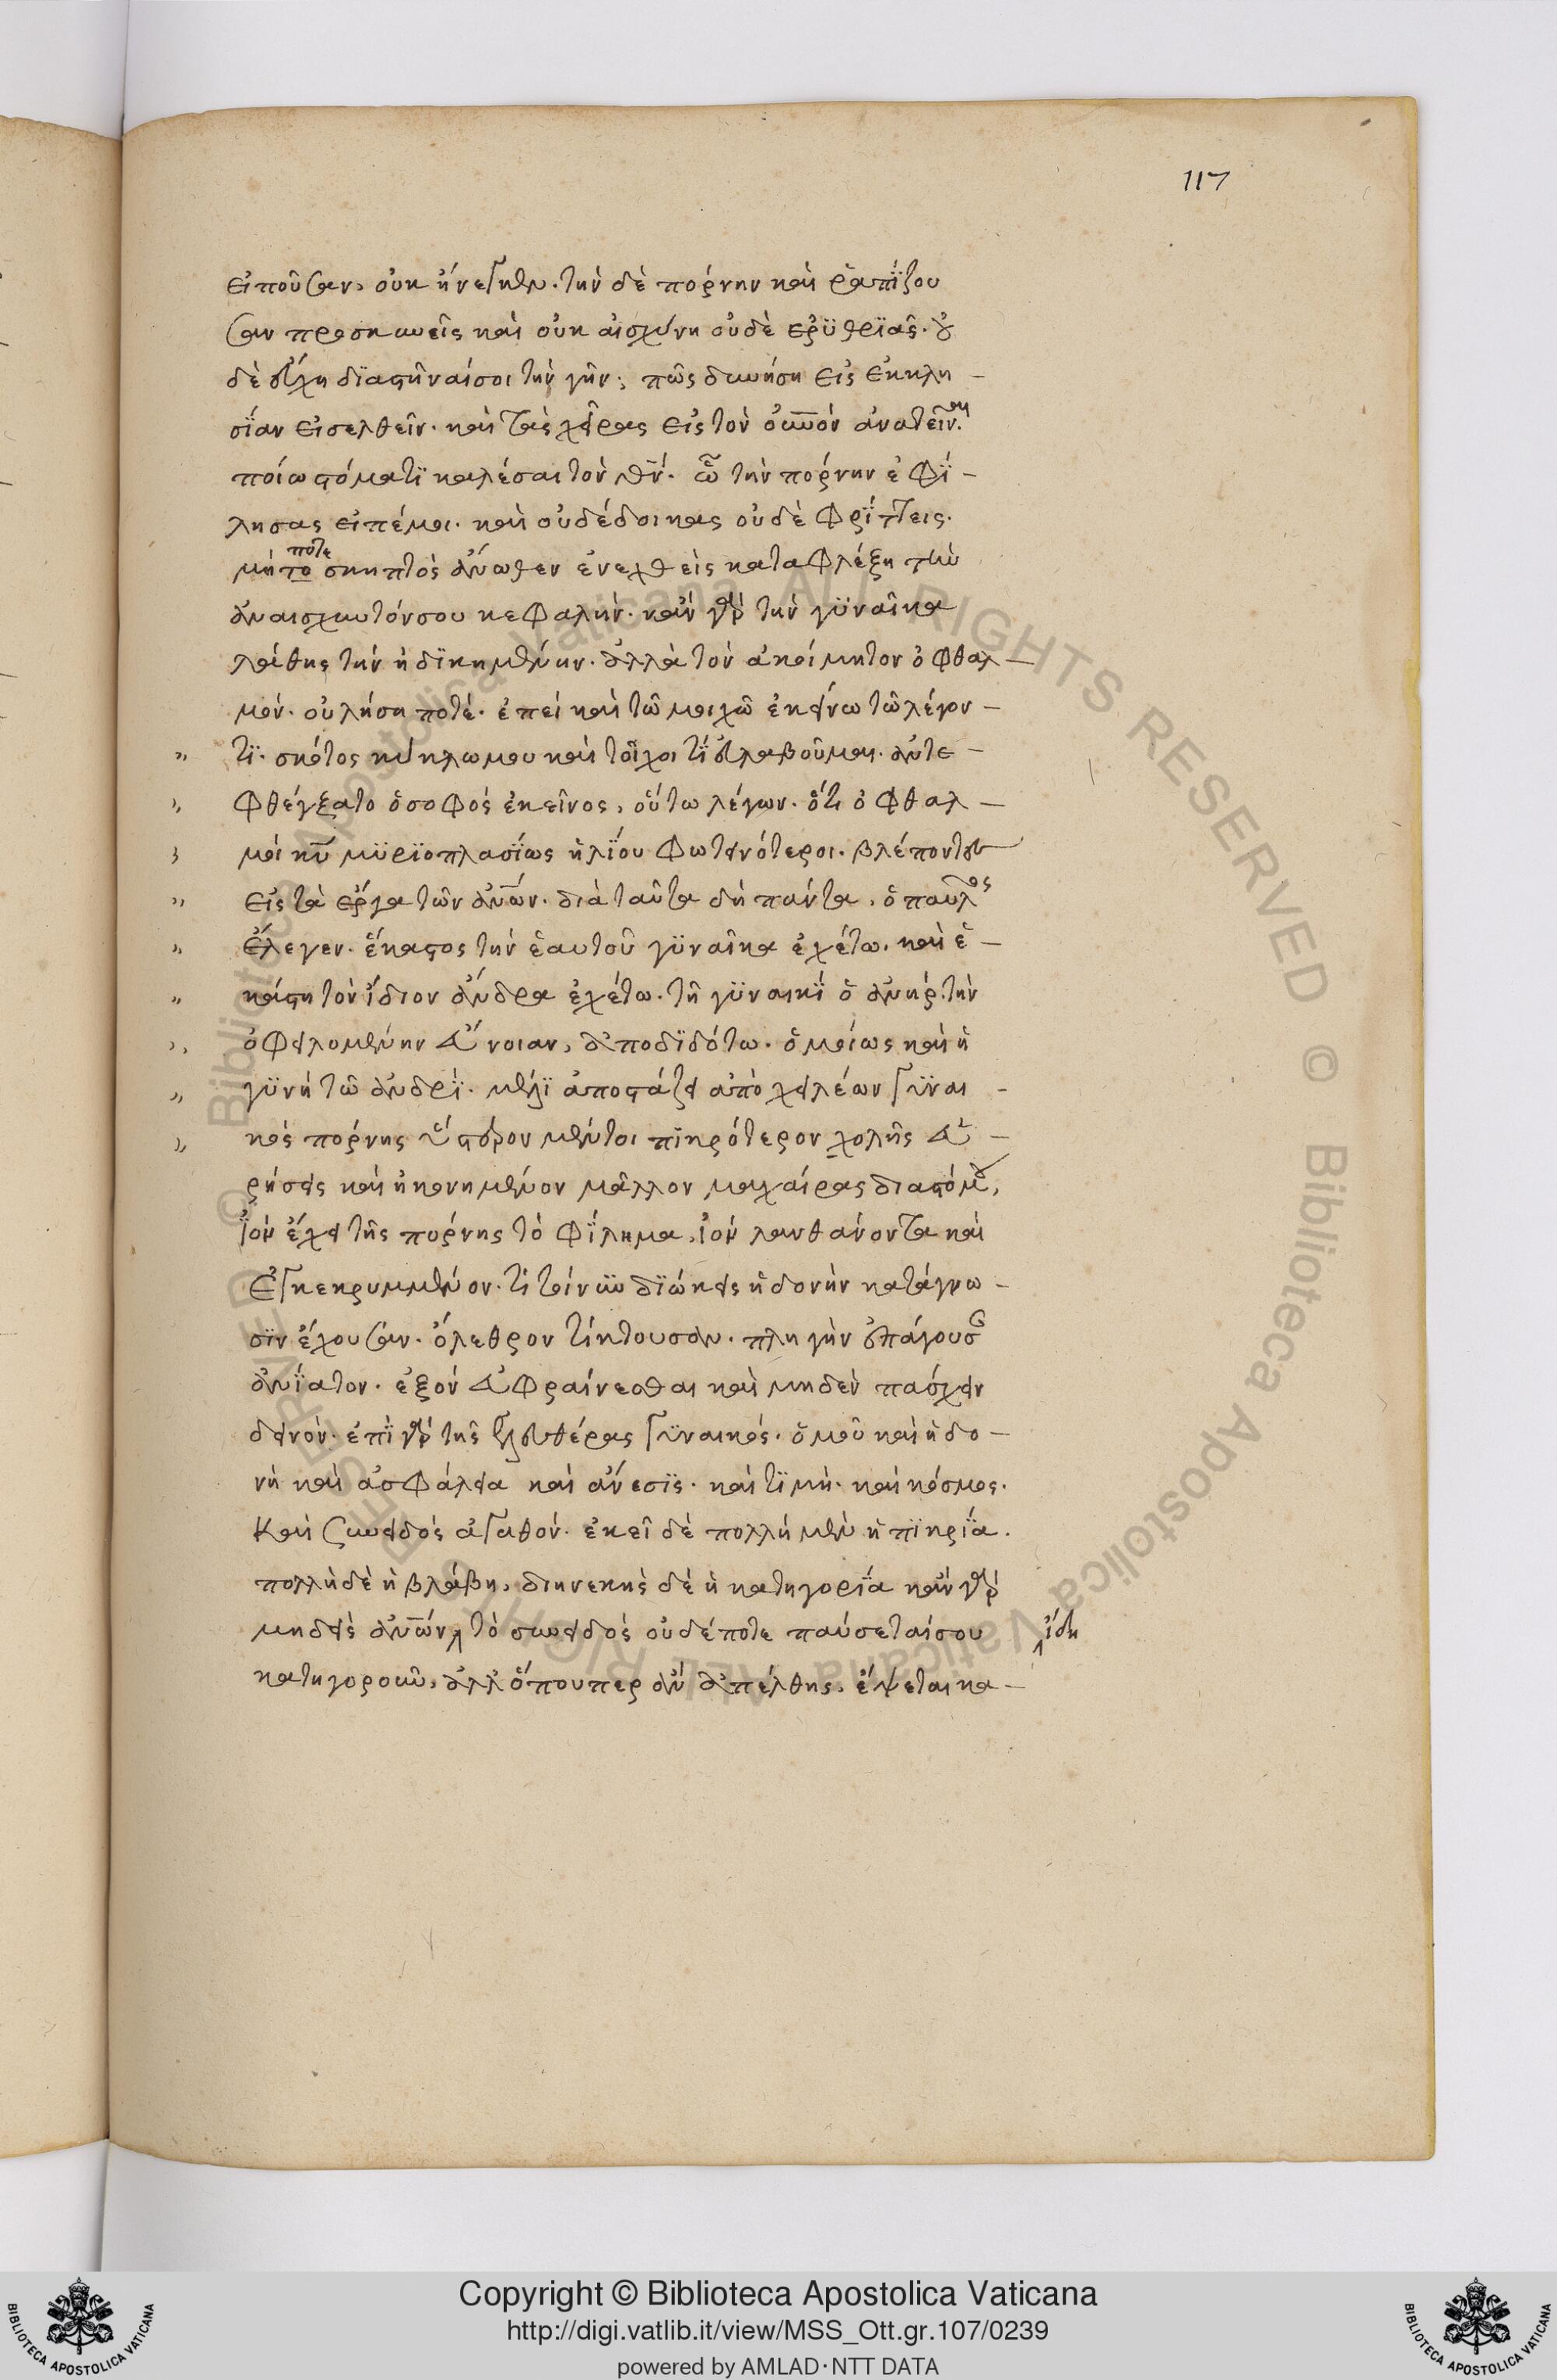 117
εἰποῦσαν, οὐκ ἤνεγκεν. τὴν δὲ πόρνην καὶ ῥαπΐζου
σαν προσκυνεῖς καὶ οὐκ αἰσχύνη οὐδὲ ἐρϋθριᾶς. οὐ
δὲ εὔχη διαστῆναί σοι τὴν γῆν; πῶς δυνήση εἰς ἐκκλη –
σΐαν εἰσελθεῖν. καὶ τὰς χεῖρας εἰς τὸν οὐνὸν ἀνατεῖναι.
ποίω στόματϊ καλέσαι τὸν θν. ὧ τὴν πόρνην ἐφΐ –
λησας εἰπέ μοι. καὶ οὐ δέδοικας οὐδὲ φρΐττεις.
ποτε
μήπο σκηπτὸς ἄνωθεν ἐνεχθεὶς καταφλέξη τὴν
ἀναισχυντόν σου κεφαλήν. κἂν γὰρ τὴν γϋναῖκα
λάθης τὴν ἠδϊκημένην. ἀλλὰ τὸν ἀκοίμητον ὀφθαλ –
μόν. οὐ λήση ποτέ. ἐπεὶ καὶ τῶ μοιχῶ ἐκείνω τῶ λέγον –
„ τϊ. σκότος κύκλω μου καὶ τοῖχοι τΐ εὐλαβοῦμαι. ἀντε –
„ φθέγξατο ὁ σοφὸς ἐκεῖνος, οὕτω λέγων. ὅτι ὀφθαλ –
„ μοὶ κυ μϋρϊοπλασΐως ἡλΐου φωτεινότεροι. βλέποντες
„ εἰς τὰ ἔργα τῶν ἀνων. διὰ ταῦτα δὴ πάντα, ὁ παῦλος
„ ἔλεγεν. ἕκαστος τὴν ἑαυτοῦ γϋναῖκα ἐχέτω. καὶ ἑ –
„ κάστη τὸν ἴδιον ἄνδρα ἐχέτω. τῆ γϋναικΐ ὁ ἀνήρ. τὴν
„ ὀφειλομένην εὔνοιαν, ἀποδϊδότω. ὁμοίως καὶ ἡ
„ γϋνὴ τῶ ἀνδρΐ. μέλϊ ἀποστάζει ἀπὸ χειλέων γϋναι –
„ κὸς πόρνης ὕστερον μέντοι πϊκρότερον χολῆς εὑ –
ρήσεις καὶ ἠκονημένον μᾶλλον μαχαίρας διαστόμου,
ἰὸν ἔχει τῆς πόρνης τὸ φΐλημα, ἰὸν λανθάνοντα καὶ
ἐγκεκρυμμένον. τί τοίνυν δϊώκεις ἡδονὴν κατάγνω –
σϊν ἔχουσαν. ὄλεθρον τίκτουσαν. πληγὴν ἐπάγουσαν
ἀνΐατον. ἐξὸν εὐφραίνεσθαι καὶ μηδὲν πάσχειν
δεινόν. ἐπΐ γὰρ τῆς ἐλευθέρας γϋναικός. ὁμοῦ καὶ ἡδο –
νὴ καὶ ἀσφάλεια καὶ ἄνεσϊς. καὶ τϊμὴ. καὶ κόσμος.
καὶ συνειδὸς ἀγαθόν. ἐκεῖ δὲ πολλὴ μὲν ἡ πϊκρΐα.
πολλὴ δὲ ἡ βλάβη, διηνεκὴς δὲ ἡ κατηγορΐα κἂν γὰρ
μηδεὶς ἀνων ⁁ τὸ συνειδὸς οὐδέποτε παύσεταί σου ⁁ ἴδη
κατηγοροῦν, ἀλλ' ὅπουπερ ἂν ἀπέλθης, ἕψεται κα –
Copyright © Biblioteca Apostolica Vaticana
http://digi.vatlib.it/view/MSS_Ott.gr.107/0239
powered by AMLAD·NTT DATA
BIBLIOTECA APOSTOLICA VATICANA
BIBLIOTECA APOSTOLICA VATICANA
© Biblioteca Apostolica Vaticana ALL RIGHTS RESERVED © Biblioteca Apostolica Vaticana ALL RIGHTS RESERVED